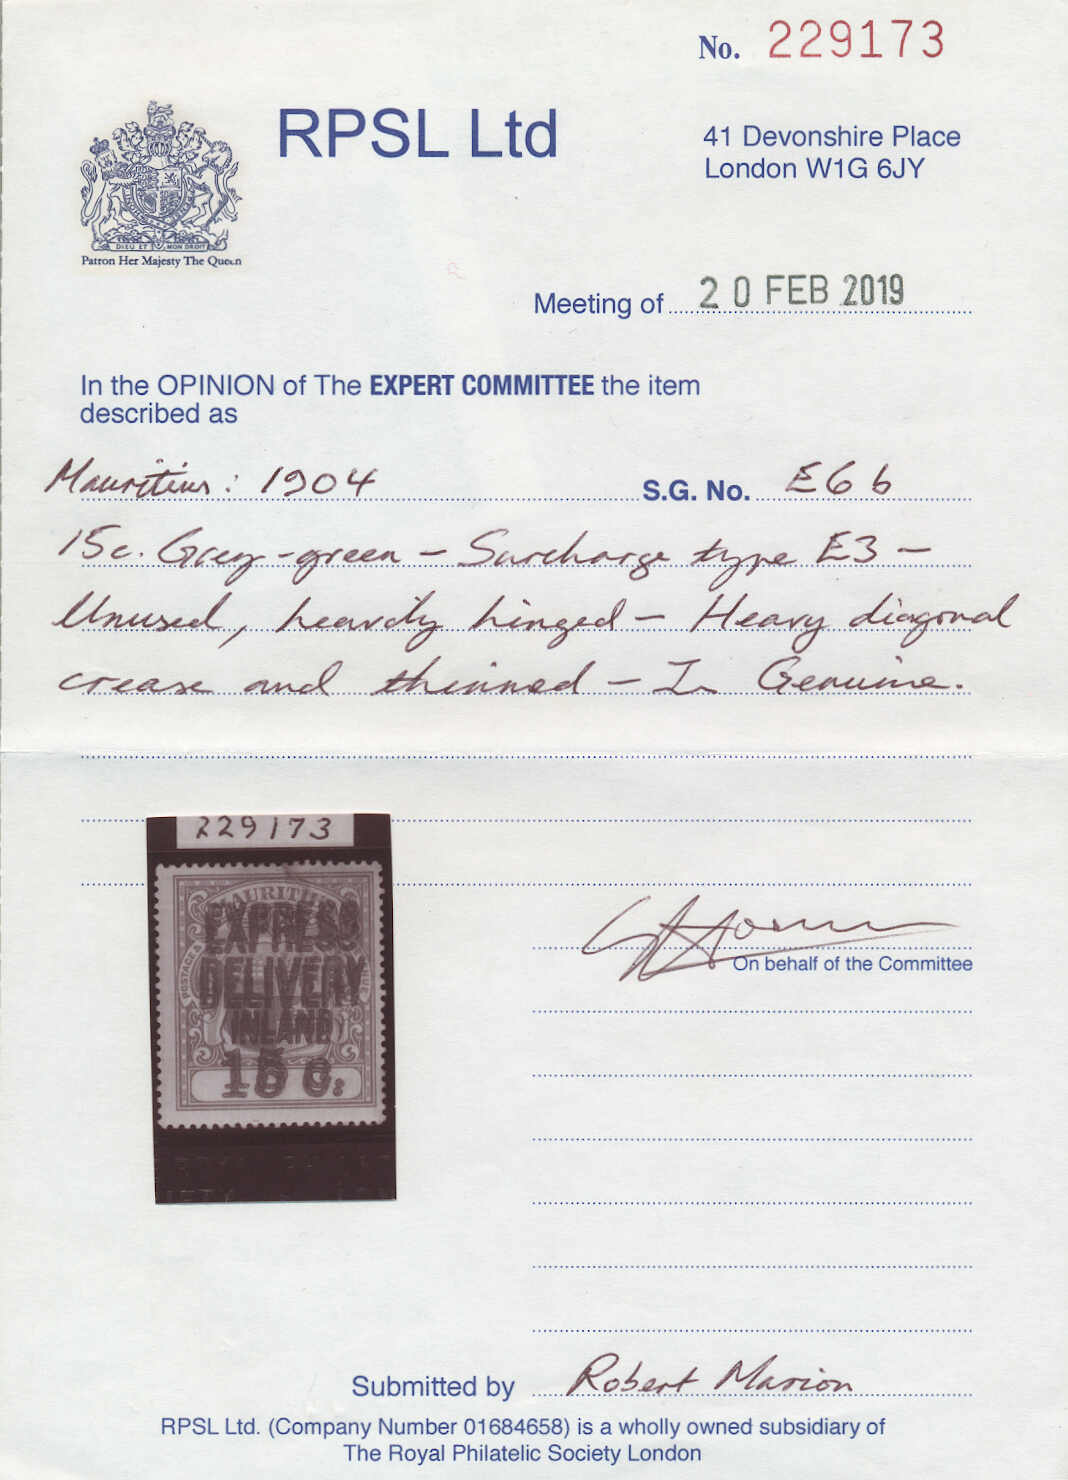 No. 229173
RPSL Ltd
41 Devonshire Place
London W1G 6JY
DIEU ET MON DROIT
Patron Her Majesty The Queen
Meeting of 20 FEB 2019
In the OPINION of The EXPERT COMMITTEE the item
described as
Mauritius: 1904 S.G. No. E6b
15c. Grey-green - Surcharge type E3 -
Unused, heavily hinged - Heavy diagonal
crease and thinned - Is Genuine.
229173
MAURITIUS
POSTAGE &
EXPRESS
DELIVERY
INLAND
15 c.
On behalf of the Committee
Submitted by Robert Marion
RPSL Ltd. (Company Number 01684658) is a wholly owned subsidiary of
The Royal Philatelic Society London